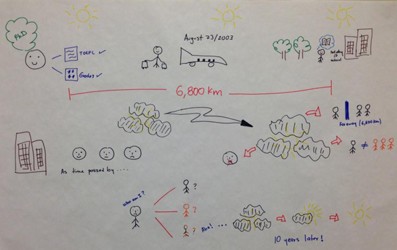 PhD
TOEFL ✓
Grades ✓
August 23/2003
6,800 km
Far away (6,800 km)
≠
As time passed by ....
who am I?
?
?
?
10 years later!